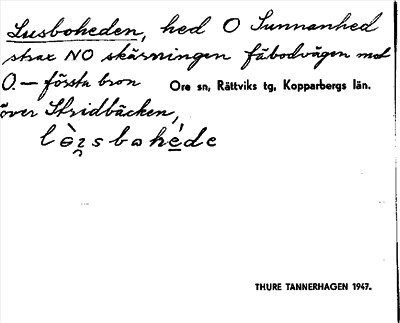 Lusboheden, hed O Sunnanhed
strax NO skärningen fäbodvägen mot
O. – första bron
Ore sn, Rättviks tg, Kopparbergs län.
över Stridbäcken,
THURE TANNERHAGEN 1947.